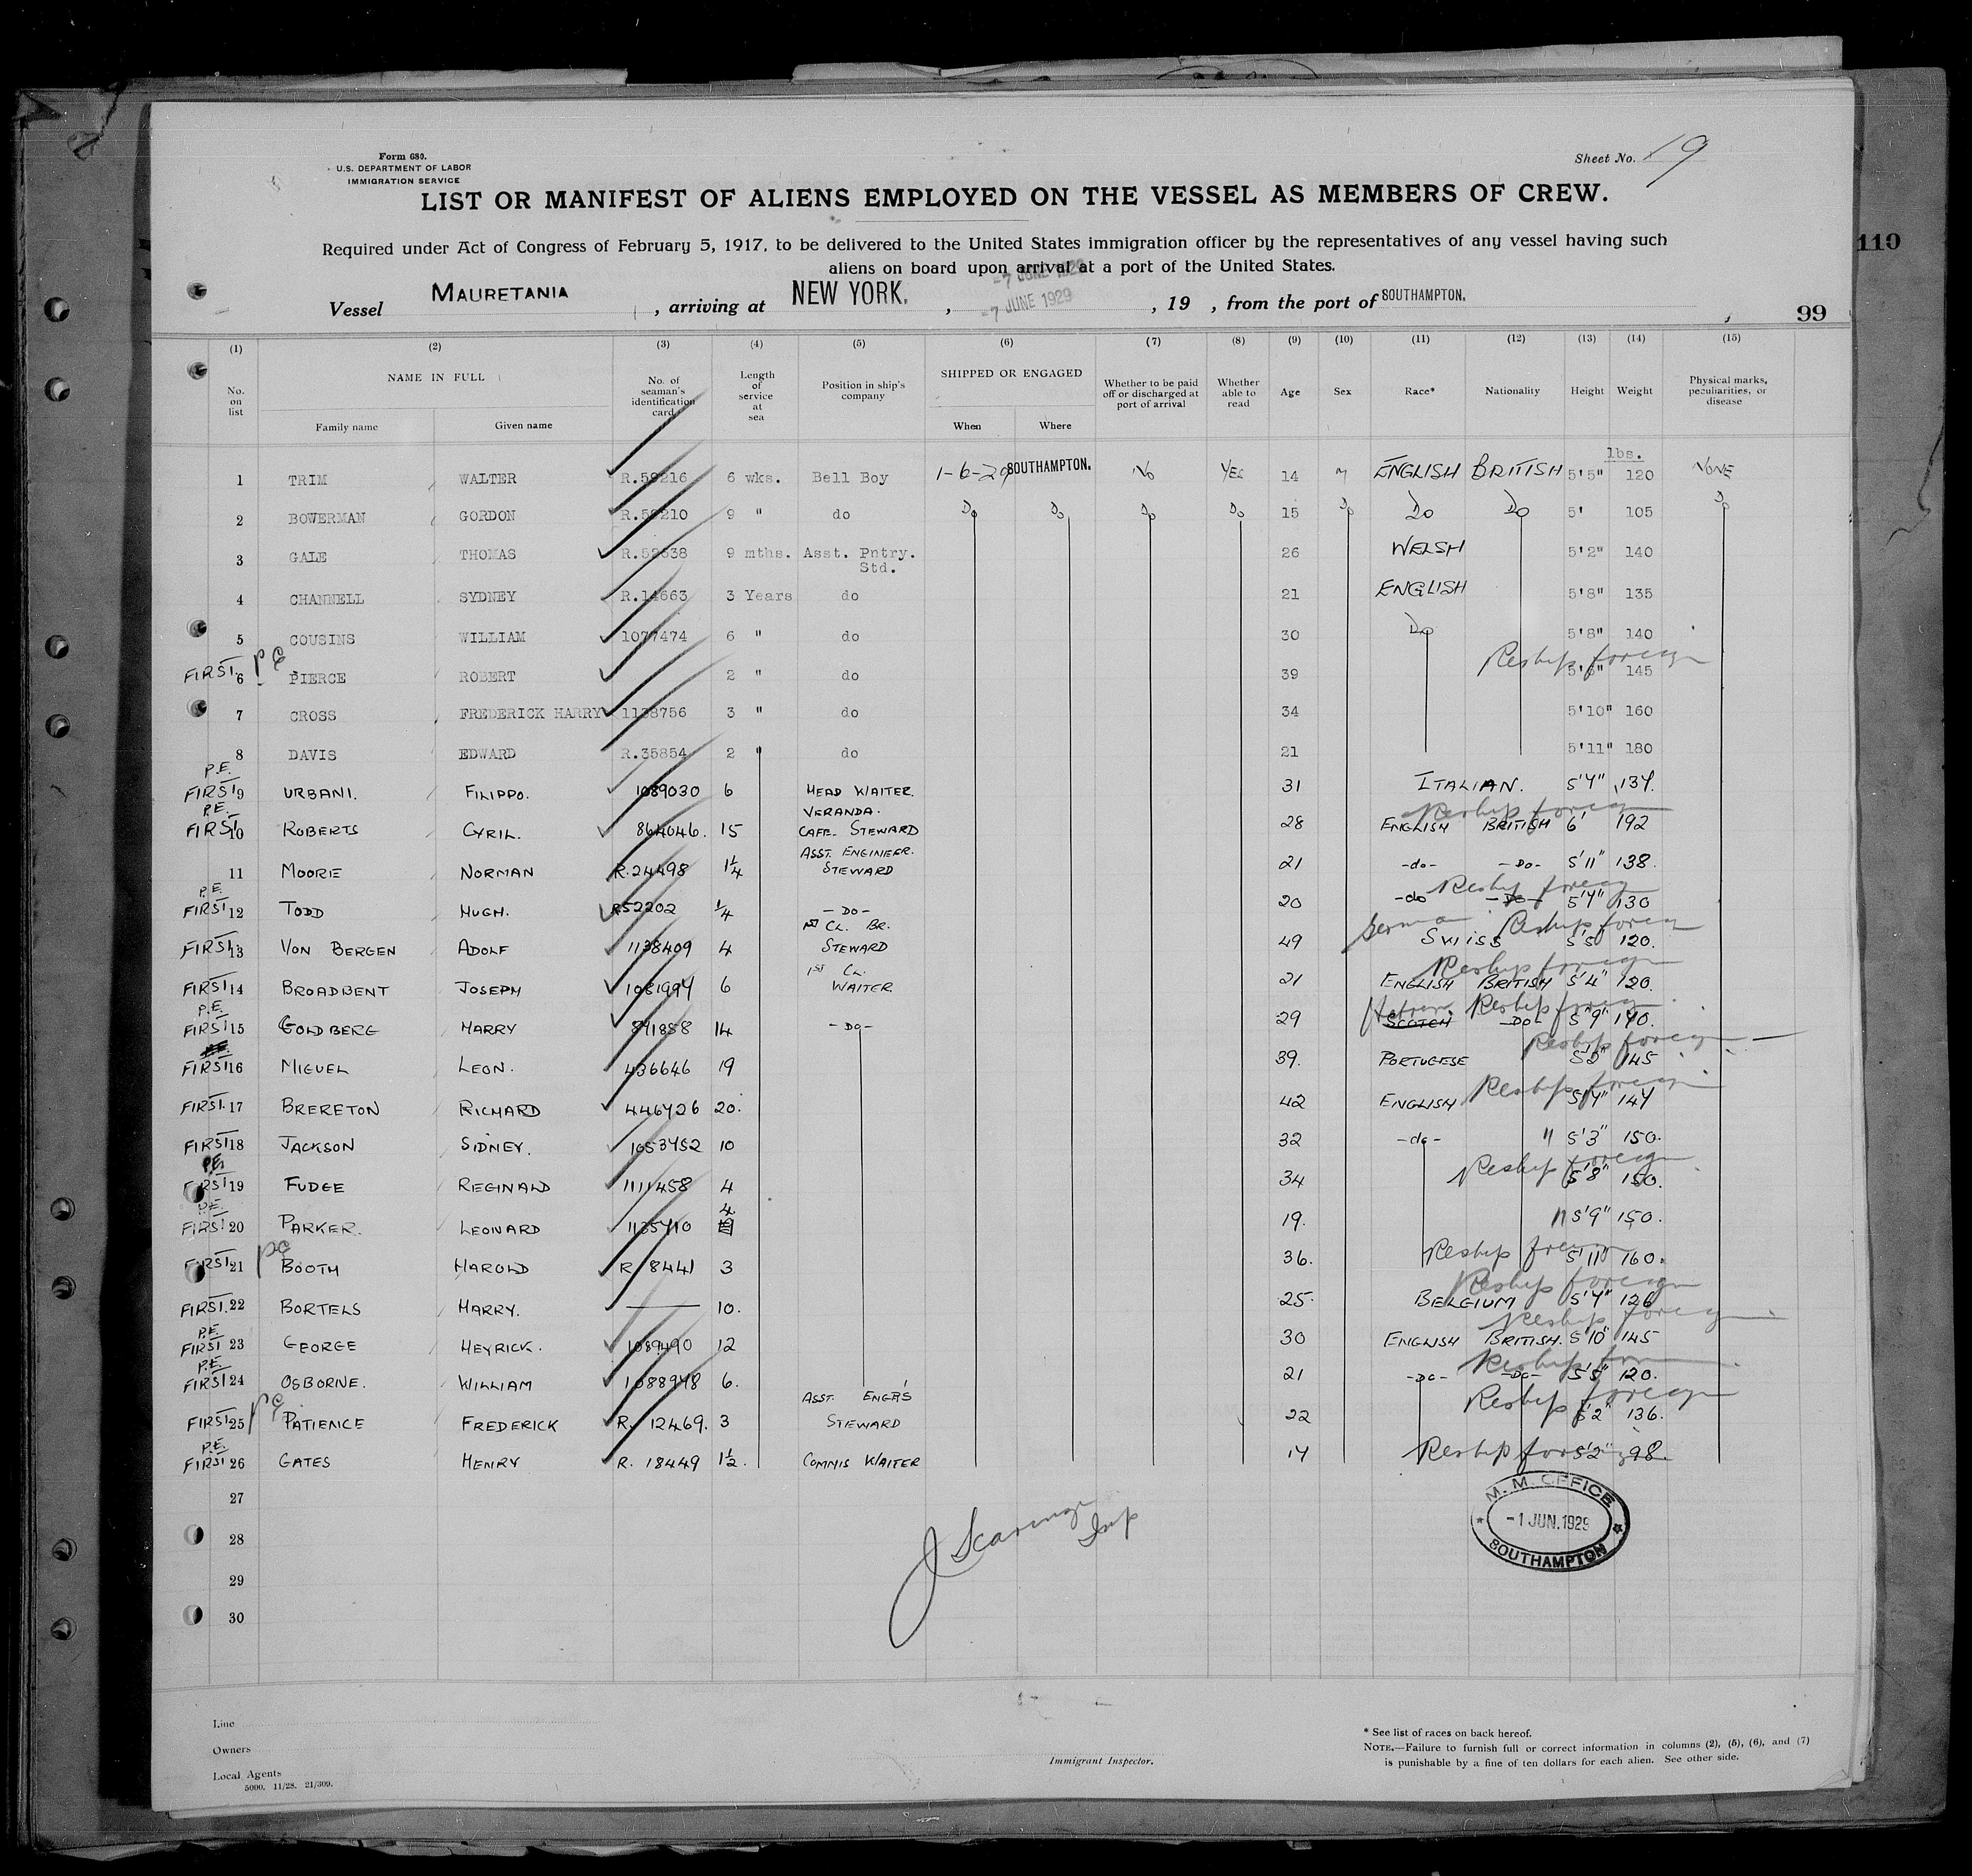 Form 680.
U.S. DEPARTMENT OF LABOR
IMMIGRATION SERVICE
Sheet No. 19
LIST OR MANIFEST OF ALIENS EMPLOYED ON THE VESSEL AS MEMBERS OF CREW.
Required under Act of Congress of February 5, 1917, to be delivered to the United States immigration officer by the representatives of any vessel having such
aliens on board upon arrival at a port of the United States.
110
-7 JUNE 1929
Vessel MAURETANIA , arriving at NEW YORK. , -7 JUNE 1929 , 19 , from the port of SOUTHAMPTON.
99
(1) (2) (3) (4) (5) (6) (7) (8) (9) (10) (11) (12) (13) (14) (15)
No. on list NAME IN FULL Family name Given name No. of seaman's identification card Length of service at sea Position in ship's company SHIPPED OR ENGAGED When Where Whether to be paid off or discharged at port of arrival Whether able to read Age Sex Race* Nationality Height Weight Physical marks, peculiarities, or disease
lbs.
1 TRIM WALTER R.59216 6 wks. Bell Boy 1-6-29 SOUTHAMPTON. No YES 14 M ENGLISH BRITISH 5'5" 120 NONE
2 BOWERMAN GORDON R.59210 9 " do Do Do Do Do 15 Do Do Do 5' 105 Do
3 GALE THOMAS R.52638 9 mths. Asst. Pntry. Std. 26 WELSH 5'2" 140
4 CHANNELL SYDNEY R.14663 3 Years do 21 ENGLISH 5'8" 135
5 COUSINS WILLIAM 1077474 6 " do 30 Do 5'8" 140
FIRST 6 PE PIERCE ROBERT 2 " do 39 Reship foreign 5'6" 145
7 CROSS FREDERICK HARRY 1138756 3 " do 34 5'10" 160
8 DAVIS EDWARD R.35854 2 " do 21 5'11" 180
P.E. FIRST 9 URBANI. FILIPPO. 1089030 6 HEAD WAITER. 31 ITALIAN. 5'4" 134.
P.E. FIRST 10 ROBERTS CYRIL. 864046. 15 VERANDA. CAFE. STEWARD 28 Reship foreign ENGLISH BRITISH 6' 192
11 MOORE NORMAN R.24498 1¼ ASST. ENGINEER. STEWARD 21 -do- -Do- 5'11" 138.
P.E. FIRST 12 TODD HUGH. R52202 ¼ -Do- 20 -do- Reship foreign -Do- 5'4" 130
FIRST 13 VON BERGEN ADOLF 1138409 4 1st CL. BR. STEWARD 49 German SWISS Reship foreign 5'5" 120.
FIRST 14 BROADBENT JOSEPH 1081994 6 1ST CL. WAITER 21 Reship foreign ENGLISH BRITISH 5'4" 120.
P.E. FIRST 15 GOLDBERG HARRY 841858 14 -Do- 29 Hebrew SCOTCH Reship foreign -Do- 5'9" 140.
FIRST 16 MIGUEL LEON. 436646 19 39. PORTUGESE Reship foreign 5'2" 145
FIRST. 17 BRERETON RICHARD 446426 20. 42 ENGLISH Reship foreign 5'4" 147
FIRST 18 JACKSON SIDNEY. 1053452 10 32 -do- " 5'3" 150.
P.E. FIRST 19 FUDGE REGINALD 1111458 4 34 Reship foreign 5'8" 150.
P.E. FIRST 20 PARKER. LEONARD 1135410 4 19. " 5'9" 150.
FIRST 21 PE BOOTH HAROLD R 8441 3 36. Reship foreign 5'11" 160.
FIRST. 22 BORTELS HARRY. — 10. 25. Reship foreign BELGIUM 5'4" 126
P.E. FIRST 23 GEORGE HEYRICK. 1089490 12 30 Reship foreign ENGLISH BRITISH. 5'10" 145
P.E. FIRST 24 OSBORNE. WILLIAM 1088948 6. 21 -Do- Reship foreign -Do- 5'5" 120.
FIRST 25 PE PATIENCE FREDERICK R. 12469. 3 ASST. ENGR'S STEWARD 22 Reship foreign 5'2" 136.
P.E. FIRST 26 GATES HENRY R. 18449 1½. COMMIS WAITER 17 Reship foreign 5'2" 98.
27
28
29
30
M. M. OFFICE
-1 JUN. 1929
SOUTHAMPTON
Insp
Line
Owners
Local Agents
5000. 11/28. 21/309.
Immigrant Inspector.
* See list of races on back hereof.
NOTE.—Failure to furnish full or correct information in columns (2), (5), (6), and (7)
is punishable by a fine of ten dollars for each alien. See other side.